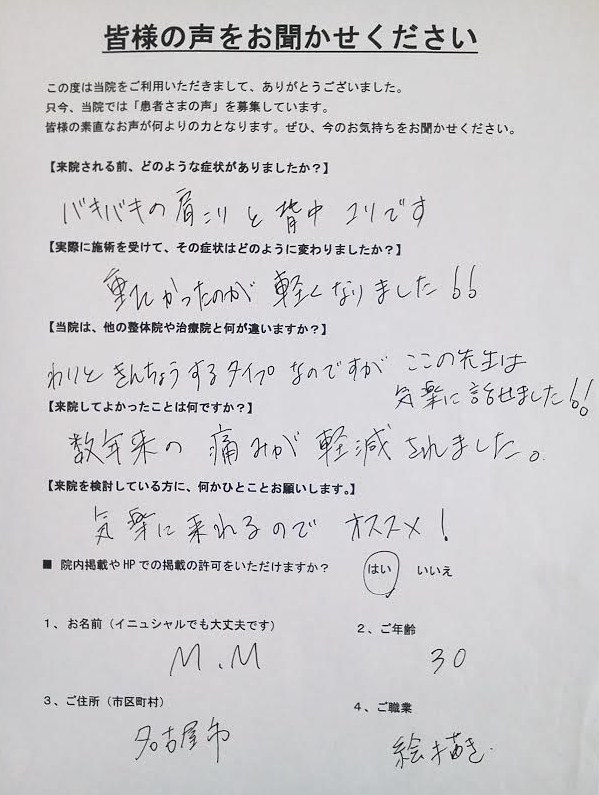 皆様の声をお聞かせください
この度は当院をご利用いただきまして、ありがとうございました。
只今、当院では「患者さまの声」を募集しています。
皆様の素直なお声が何よりの力となります。ぜひ、今のお気持ちをお聞かせください。
【来院される前、どのような症状がありましたか？】
バキバキの肩こりと背中コリです
【実際に施術を受けて、その症状はどのように変わりましたか？】
重たかったのが軽くなりました!!
【当院は、他の整体院や治療院と何が違いますか？】
わりときんちょうするタイプなのですがここの先生は
気楽に話せました!!
【来院してよかったことは何ですか？】
数年来の痛みが軽減されました。
【来院を検討している方に、何かひとことお願いします。】
気楽に来れるのでオススメ！
■ 院内掲載やHPでの掲載の許可をいただけますか？ はい いいえ
１、お名前（イニュシャルでも大丈夫です） ２、ご年齢
M.M 30
３、ご住所（市区町村） ４、ご職業
名古屋市 絵描き